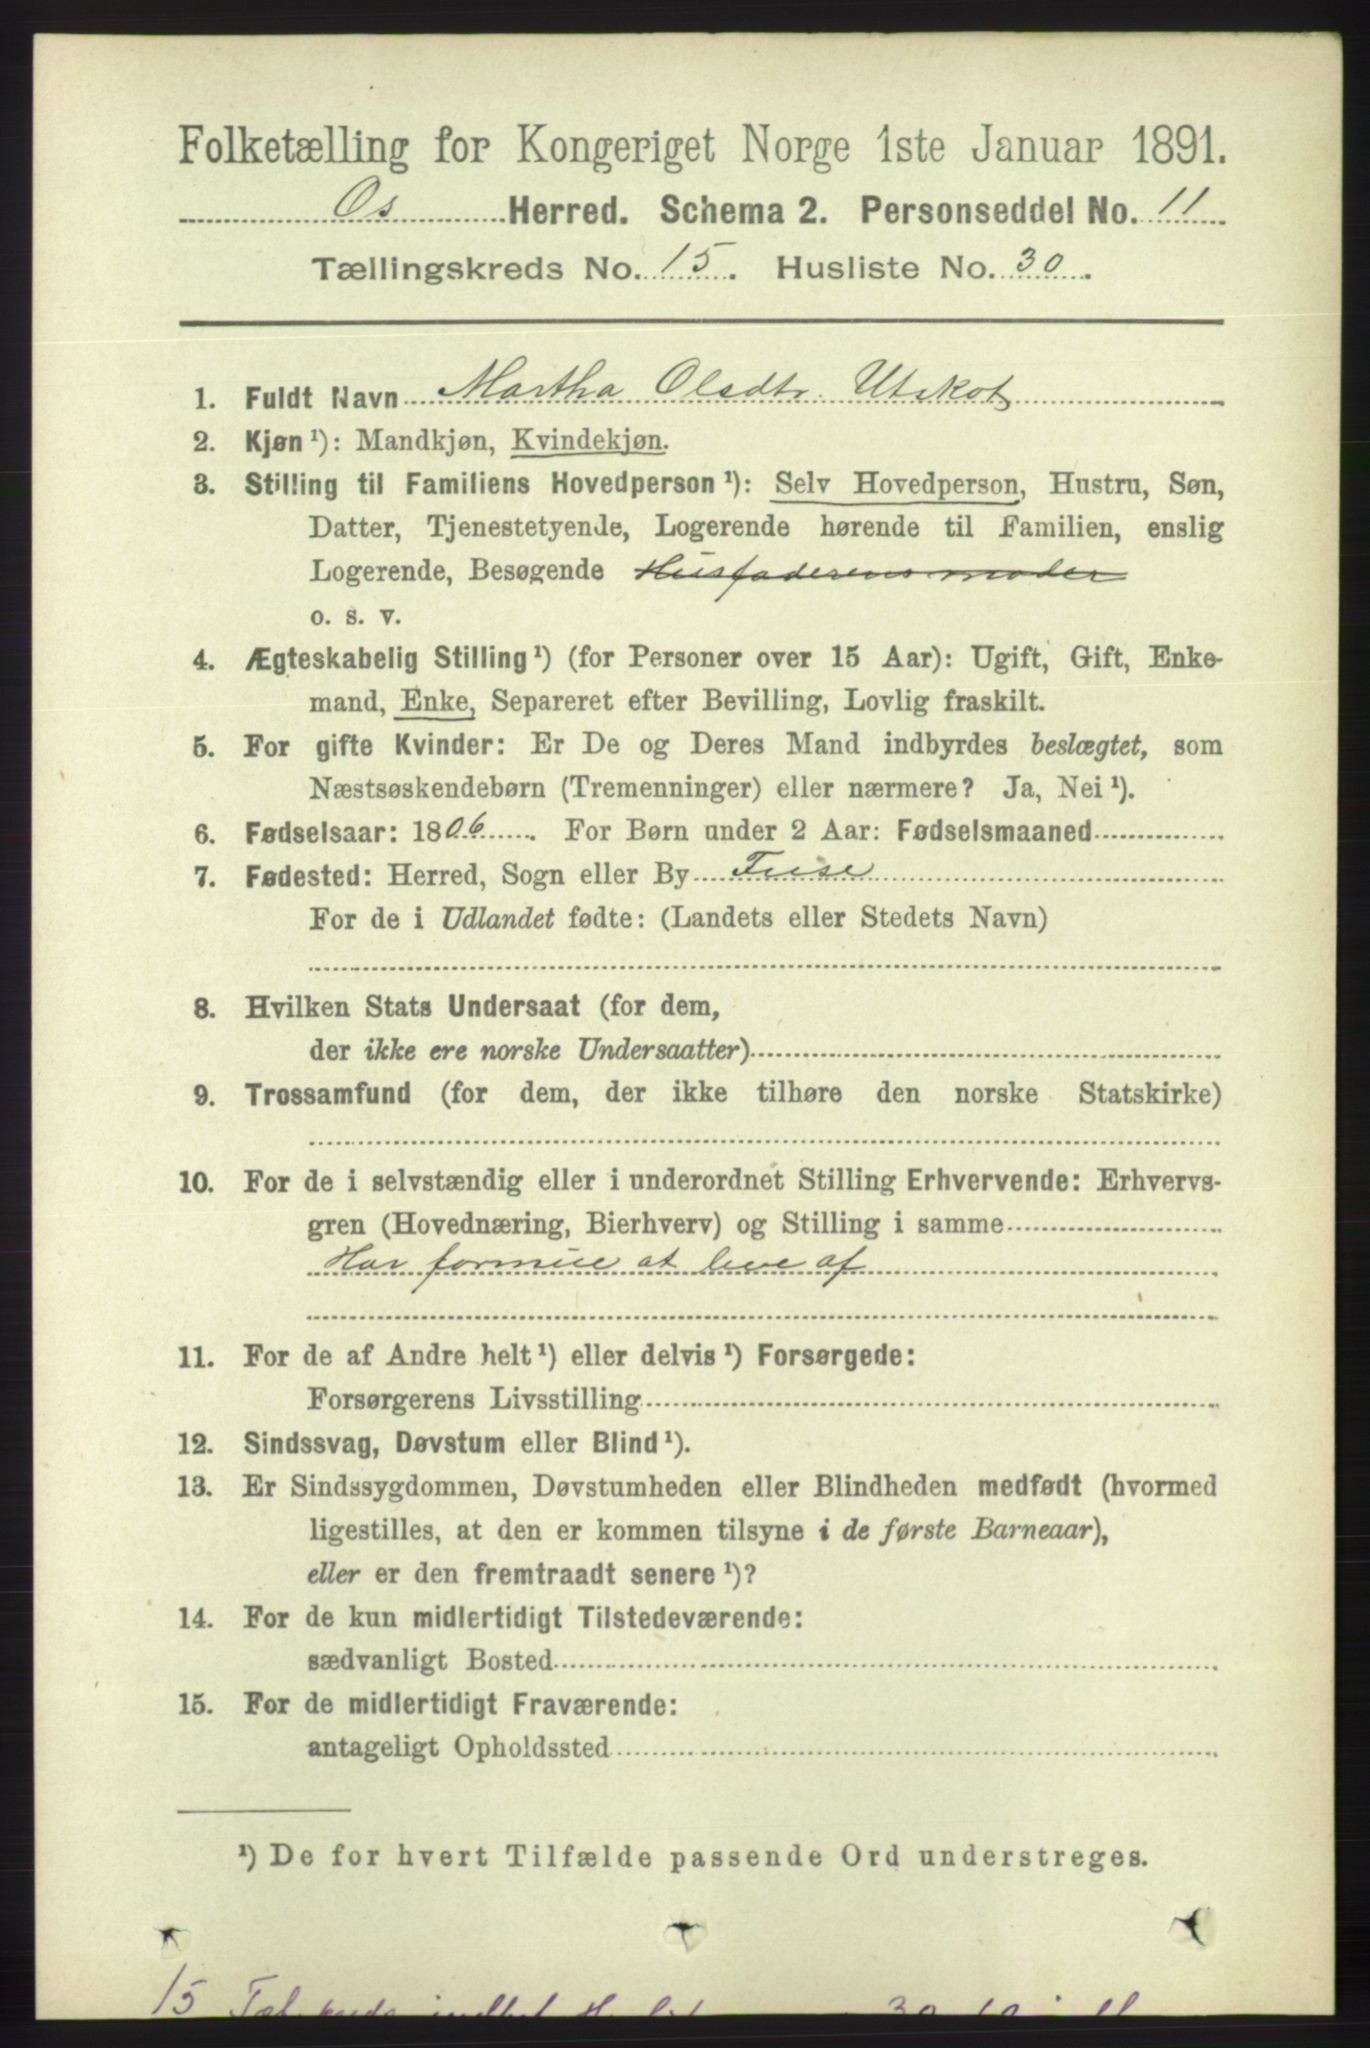 Folketælling for Kongeriget Norge 1ste Januar 1891.
Os Herred. Schema 2. Personseddel No. 11
Tællingskreds No. 15. Husliste No. 30.
1. Fuldt Navn Martha Olsdtr. Utskot
2. Kjøn ¹): Mandkjøn, Kvindekjøn.
3. Stilling til Familiens Hovedperson ¹): Selv Hovedperson, Hustru, Søn,
Datter, Tjenestetyende, Logerende hørende til Familien, enslig
Logerende, Besøgende Husfaderens moder
o. s. v.
4. Ægteskabelig Stilling ¹) (for Personer over 15 Aar): Ugift, Gift, Enke-
mand, Enke, Separeret efter Bevilling, Lovlig fraskilt.
5. For gifte Kvinder: Er De og Deres Mand indbyrdes beslægtet, som
Næstsøskendebørn (Tremenninger) eller nærmere? Ja, Nei ¹).
6. Fødselsaar: 1806. For Børn under 2 Aar: Fødselsmaaned
7. Fødested: Herred, Sogn eller By Fuse
For de i Udlandet fødte: (Landets eller Stedets Navn)
8. Hvilken Stats Undersaat (for dem,
der ikke ere norske Undersaatter)
9. Trossamfund (for dem, der ikke tilhøre den norske Statskirke)
10. For de i selvstændig eller i underordnet Stilling Erhvervende: Erhvervs-
gren (Hovednæring, Bierhverv) og Stilling i samme
Har formue at leve af
11. For de af Andre helt ¹) eller delvis ¹) Forsørgede:
Forsørgerens Livsstilling
12. Sindssvag, Døvstum eller Blind ¹).
13. Er Sindssygdommen, Døvstumheden eller Blindheden medfødt (hvormed
ligestilles, at den er kommen tilsyne i de første Barneaar),
eller er den fremtraadt senere ¹)?
14. For de kun midlertidigt Tilstedeværende:
sædvanligt Bosted
15. For de midlertidigt Fraværende:
antageligt Opholdssted
¹) De for hvert Tilfælde passende Ord understreges.
15